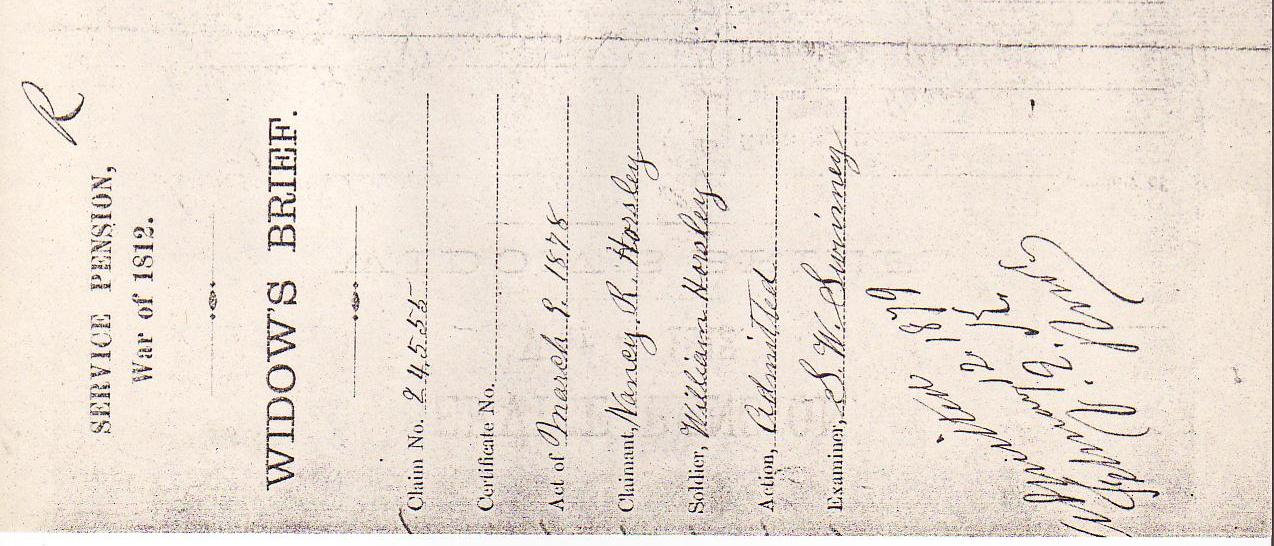 R
SERVICE PENSION,
War of 1812.
WIDOW'S BRIEF.
Claim No. 24,555
Certificate No.
Act of March 9, 1878
Claimant, Nancy R. Horsley
Soldier, William Horsley
Action, Admitted
Examiner, S. W. Swinney
1879